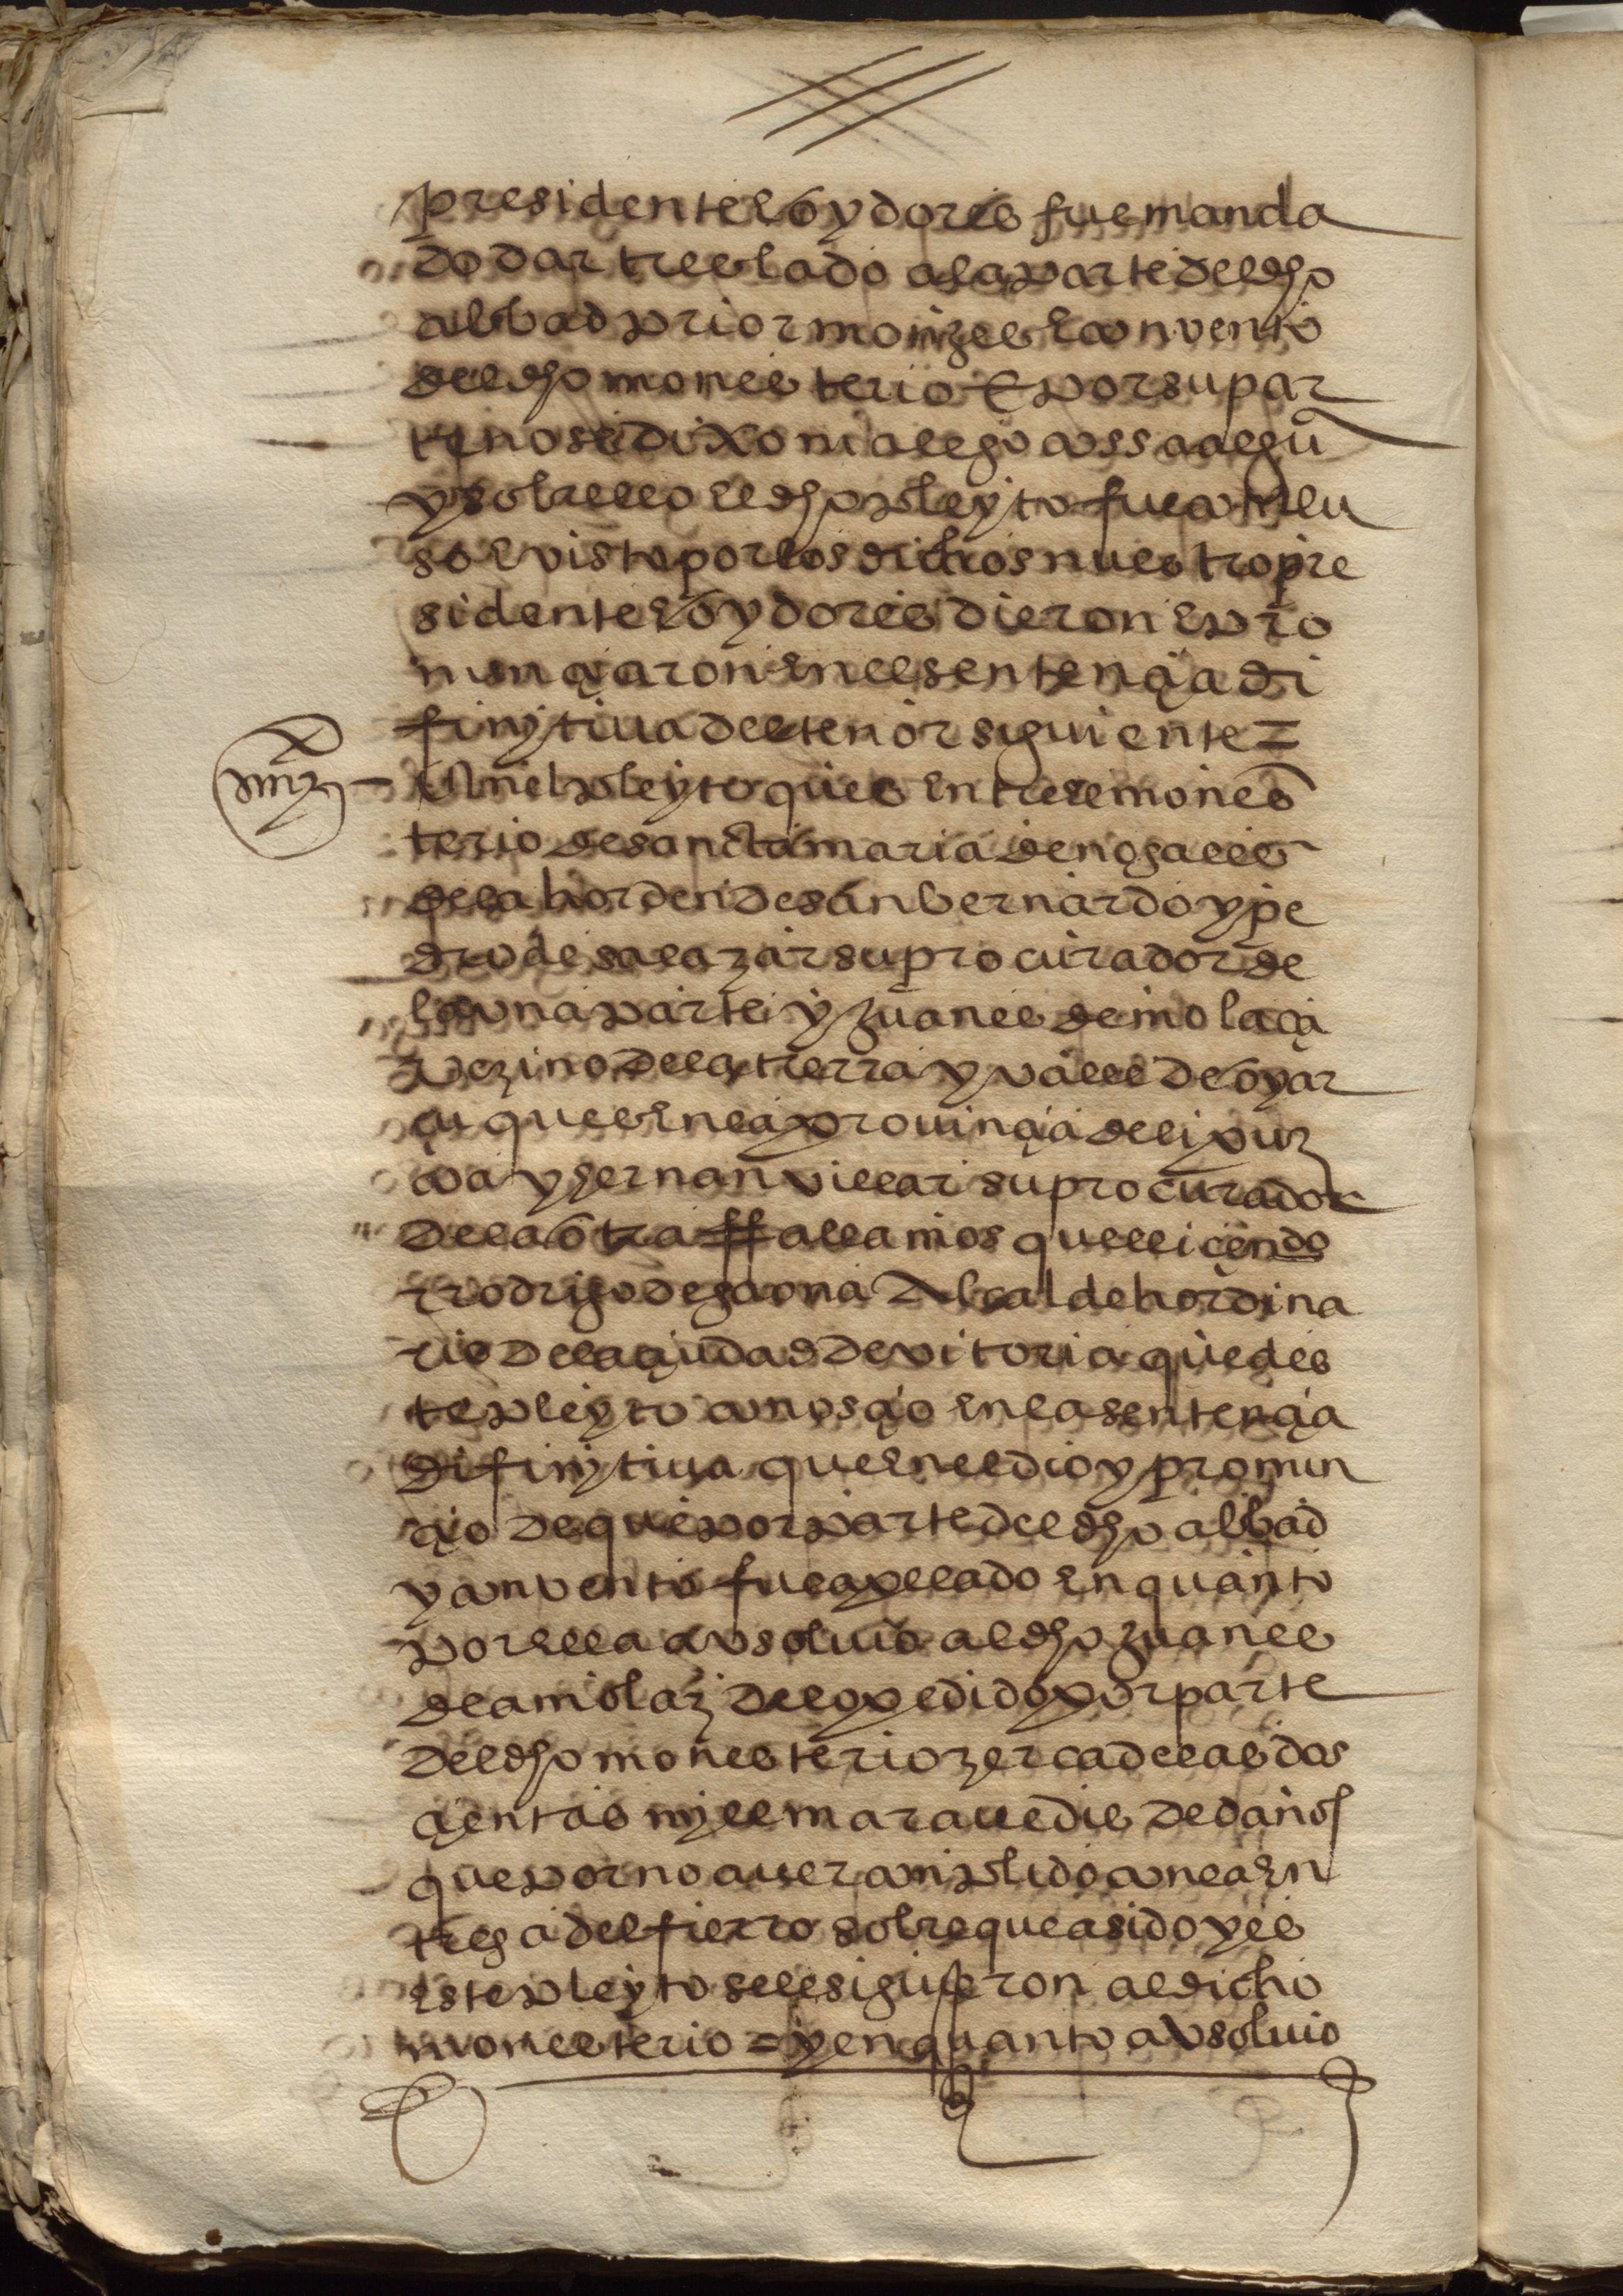 presidente e oydores fue manda
do dar treslado a la parte del dho
abbad prior monges e convento
del dho monesterio e por su par
te no se dixo ni alego cossa algu
y sobre ello el dho pleyto fue conclu
so e visto por los dichos nuestro pre
sidente e oydores dieron e pro
nunçiaron en el sentençia di
finytiua del tenor siguiente =
En el pleyto que es entre el mones
terio de sancta maria de nogales
de la horden de san bernardo y pe
dro de salazar su procurador de
la vna parte y juanes de molaça
vezino de la tierra y valle de oyar
çu que es en la prouinçia de lipuz
coa y hernan villar su procurador
de la otra ffallamos que el liçendo
rrodrigo de gaona Alcalde hordina
rio de la çiudad de vitoria que des
te pleyto conosçio en la sentençia
difinytiua que en el dio y pronun
çio de que por parte del dho abbad
y convento fue apellado en quanto
por ella absoluio al dho juanes
de amolaz de lo pedido por parte
del dho monesterio zerca de las dos
çientas myll maravedis de daños
que por no aver conplido con la en
trega del fierro sobre que a sido y es
este pleyto se le siguieron al dicho
monesterio = y en quanto absoluio